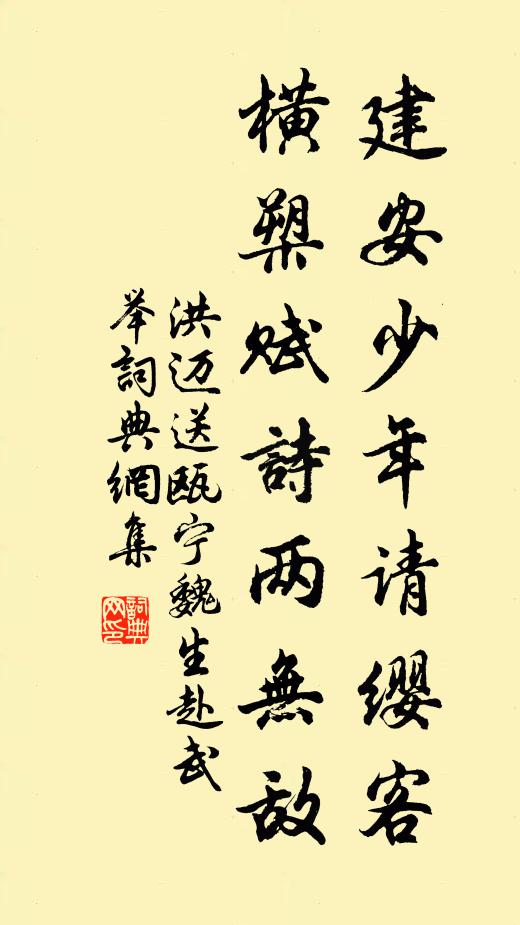 建安少年请缨客
横槊赋詩两無敌
洪迈送瓯宁魏生赴武
举詞典網集
詞典
网印